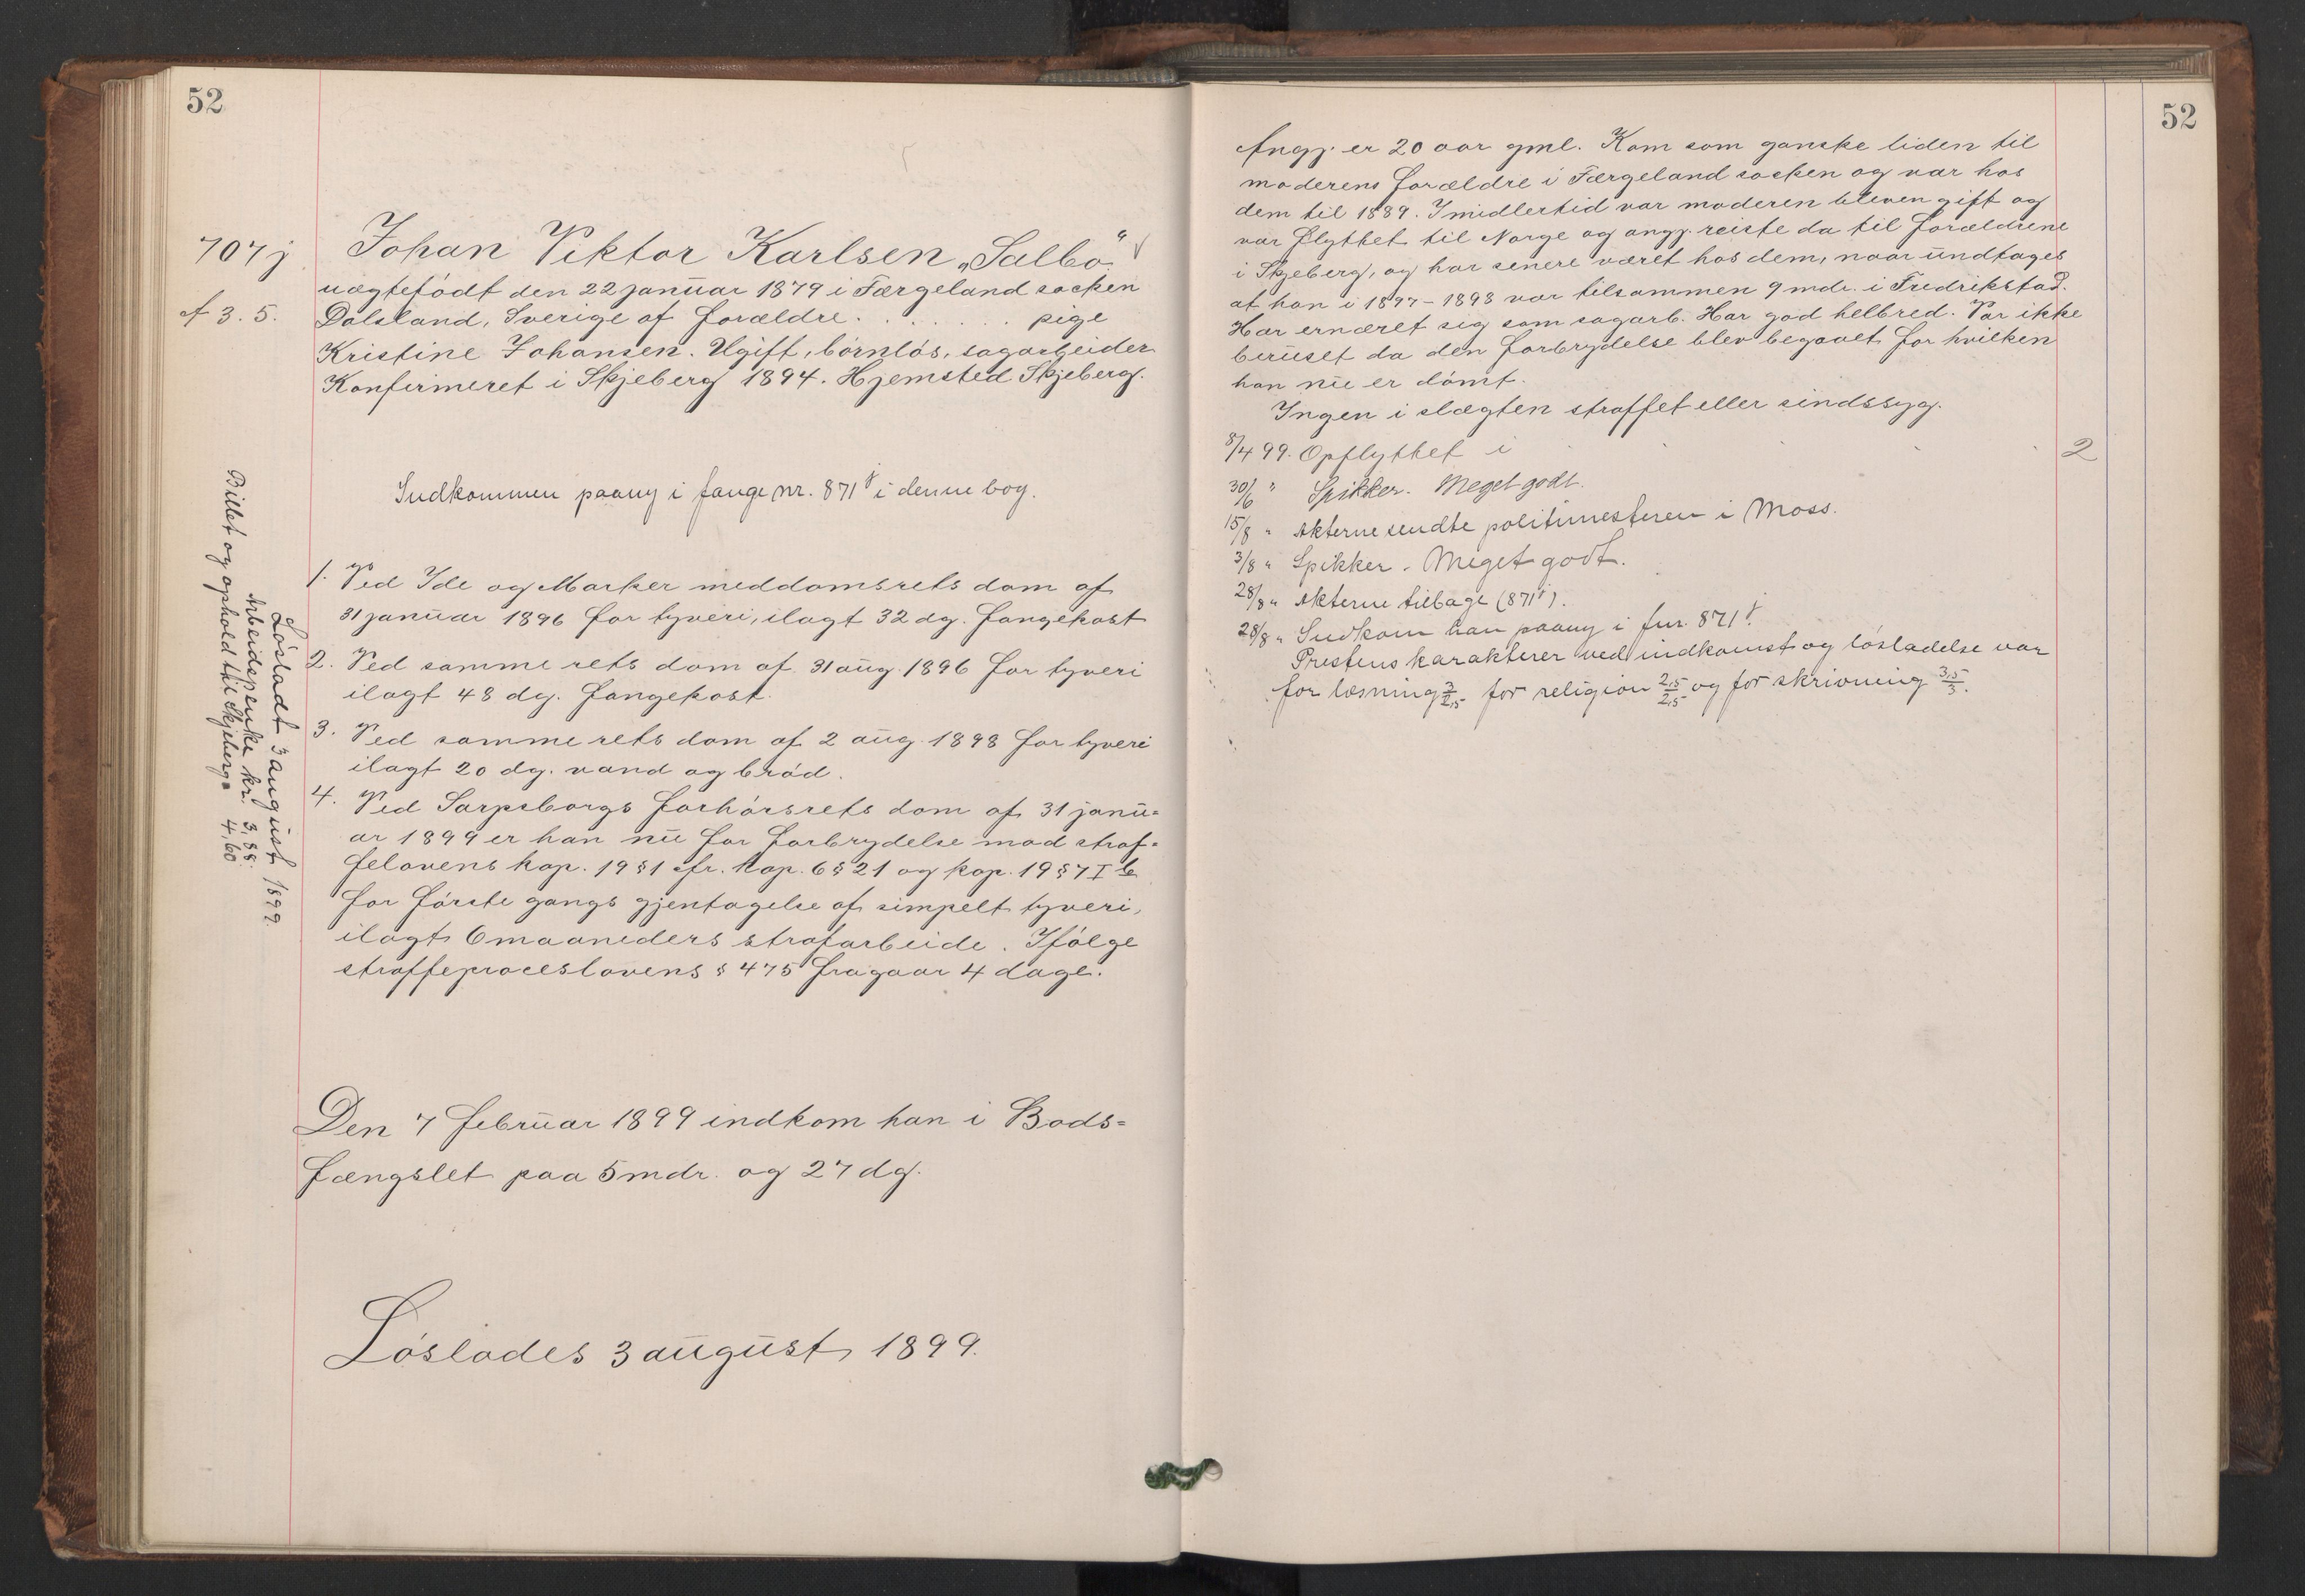 52
707 j
Johan Viktor Karlsen „Salbö“
uægtefödt den 22 januar 1879 i Færgeland socken
f 3. 5.
Dalsland, Sverige af forældre . . . . . . . pige
Kristine Johansen. Ugift, börnlös, sagarbeider.
Konfirmeret i Skjeberg 1894. Hjemsted Skjeberg.
Indkommen paany i fange nr. 871 j i denne bog.
1. Ved Ide og Marker meddomsrets dom af
31 januar 1896 for tyveri, ilagt 32 dg. fangekost
2. Ved samme rets dom af 31 aug. 1896 for tyveri
ilagt 48 dg. fangekost.
3. Ved samme rets dom af 2 aug. 1898 for tyveri
ilagt 20 dg. vand og bröd.
4. Ved Sarpsborgs forhörsrets dom af 31 janu=
ar 1899 er han nu for forbrydelse mod straf=
felovens kap. 19 § 1 cfr. kap. 6 § 21 og kap. 19 § 7 I b
for förste gangs gjentagelse af simpelt tyveri,
ilagt 6 maaneders strafarbeide. Ifölge
straffeproceslovens § 475 fragaar 4 dage.
Den 7 februar 1899 indkom han i Bods=
fængslet paa 5 mdr. og 27 dg.
Löslades 3 august 1899.
Lösladt 3 august 1899.
Arbeidspenke kr. 3,88.
Billet og ophold til Skjeberg " 4,60
52
Angj. er 20 aar gml. Kom som ganske liden til
moderens forældre i Færgeland socken og var hos
dem til 1889. Imidlertid var moderen bleven gift og
var flyttet til Norge og angj. reiste da til forældrene
i Skjeberg, og har senere været hos dem, naar undtages
at han i 1897-1898 var tilsammen 9 mdr. i Fredrikstad.
Har ernæret sig som sagarb. Har god helbred. Var ikke
beruset da den forbrydelse blev begaaet for hvilken
han nu er dömt.
Ingen i slægten straffet eller sindssyg.
8/4 99. Opflyttet i 2
30/6 " Spikker. Meget godt.
15/8 " Akterne sendte politimesteren i Moss.
3/8 " Spikker. Meget godt.
28/8 " Akterne tilbage (871 j).
28/8 " Indkom han paany i fnr. 871 j.
Prestens karakterer ved indkomst og lösladelse var
for læsning 3/2,5 for religion 2,5/2,5 og for skrivning 3,5/3.